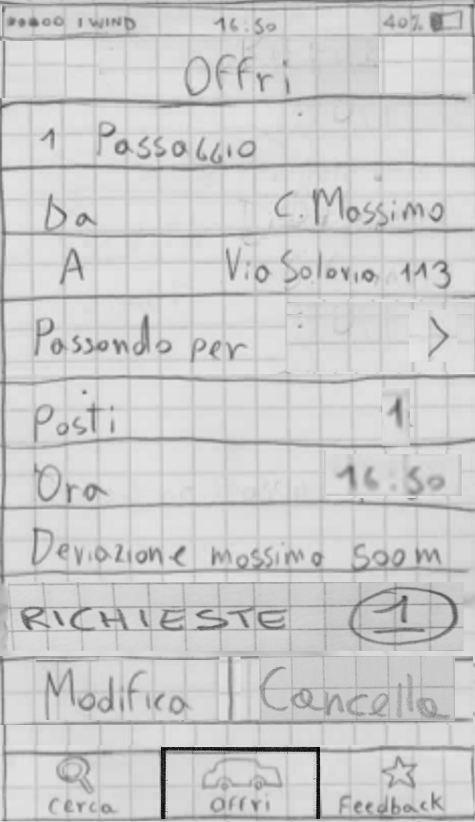 1 WIND 16:50 40%
Offri
1 Passaggio
Da C. Massimo
A Via Salaria 113
Passando per >
Posti 1
Ora 16:50
Deviazione massima 500m
RICHIESTE 1
Modifica Cancella
Cerca Offri Feedback